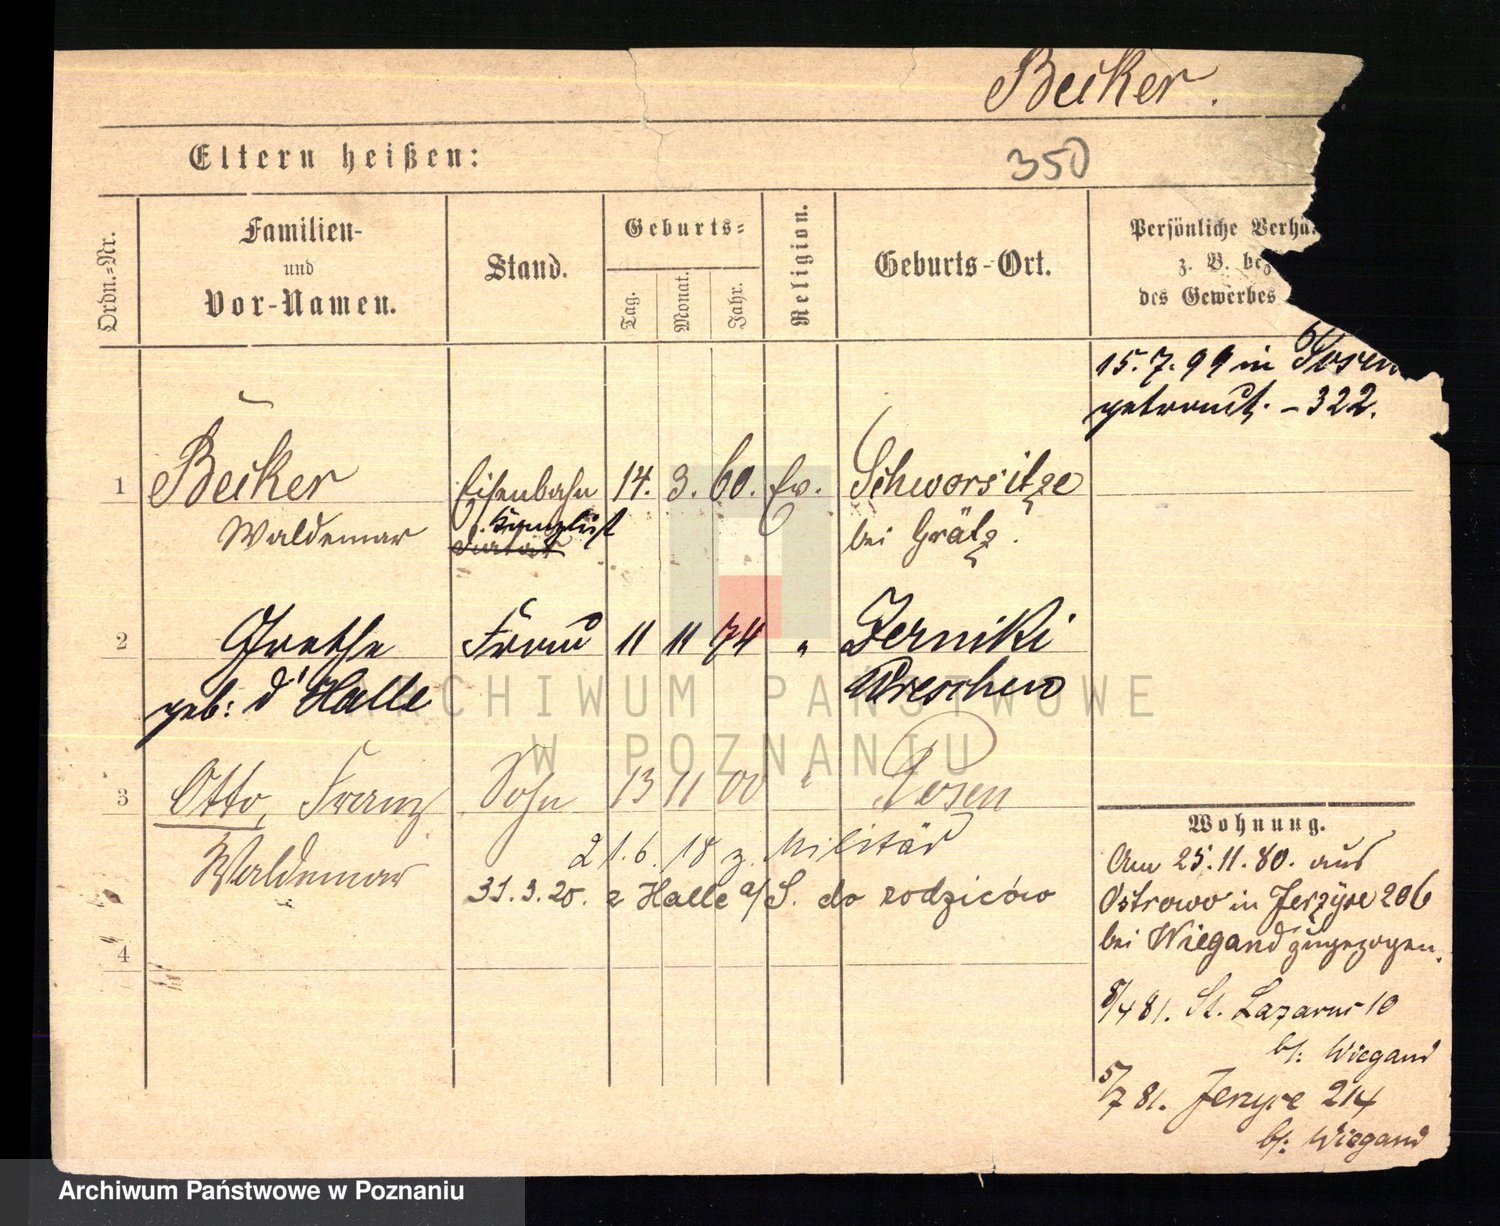 Becker.
Eltern heißen:
350
Ordn.-Nr.
Familien-
und
Vor-Namen.
Stand.
Geburts-
Tag.
Monat.
Jahr.
Religion.
Geburts-Ort.
Persönliche Verhä
z. B. bez
des Gewerbes
15. 7. 99 in Posen
getraut. – 322.
1 Becker Eisenbahn 14. 3. 60. Ev. Schworsitze
Waldemar Kanzlist bei Grätz.
2 Grethe Frau 11 11 74 " Zerniki
geb: d'Halle Wreschen
3 Otto, Franz Sohn 13 11 00 " Posen
Waldemar
21. 6. 18 z. Militär
31. 3. 20. z Halle a/S. do rodziców
4
Wohnung.
Am 25. 11. 80. aus
Ostrowo in Jerzyce 206
bei Wiegand zugezogen.
8/4 81. St. Lazarus 10
b/: Wiegand
5/7 81. Jerzyce 214
b/: Wiegand
ARCHIWUM PAŃSTWOWE
W POZNANIU
Archiwum Państwowe w Poznaniu